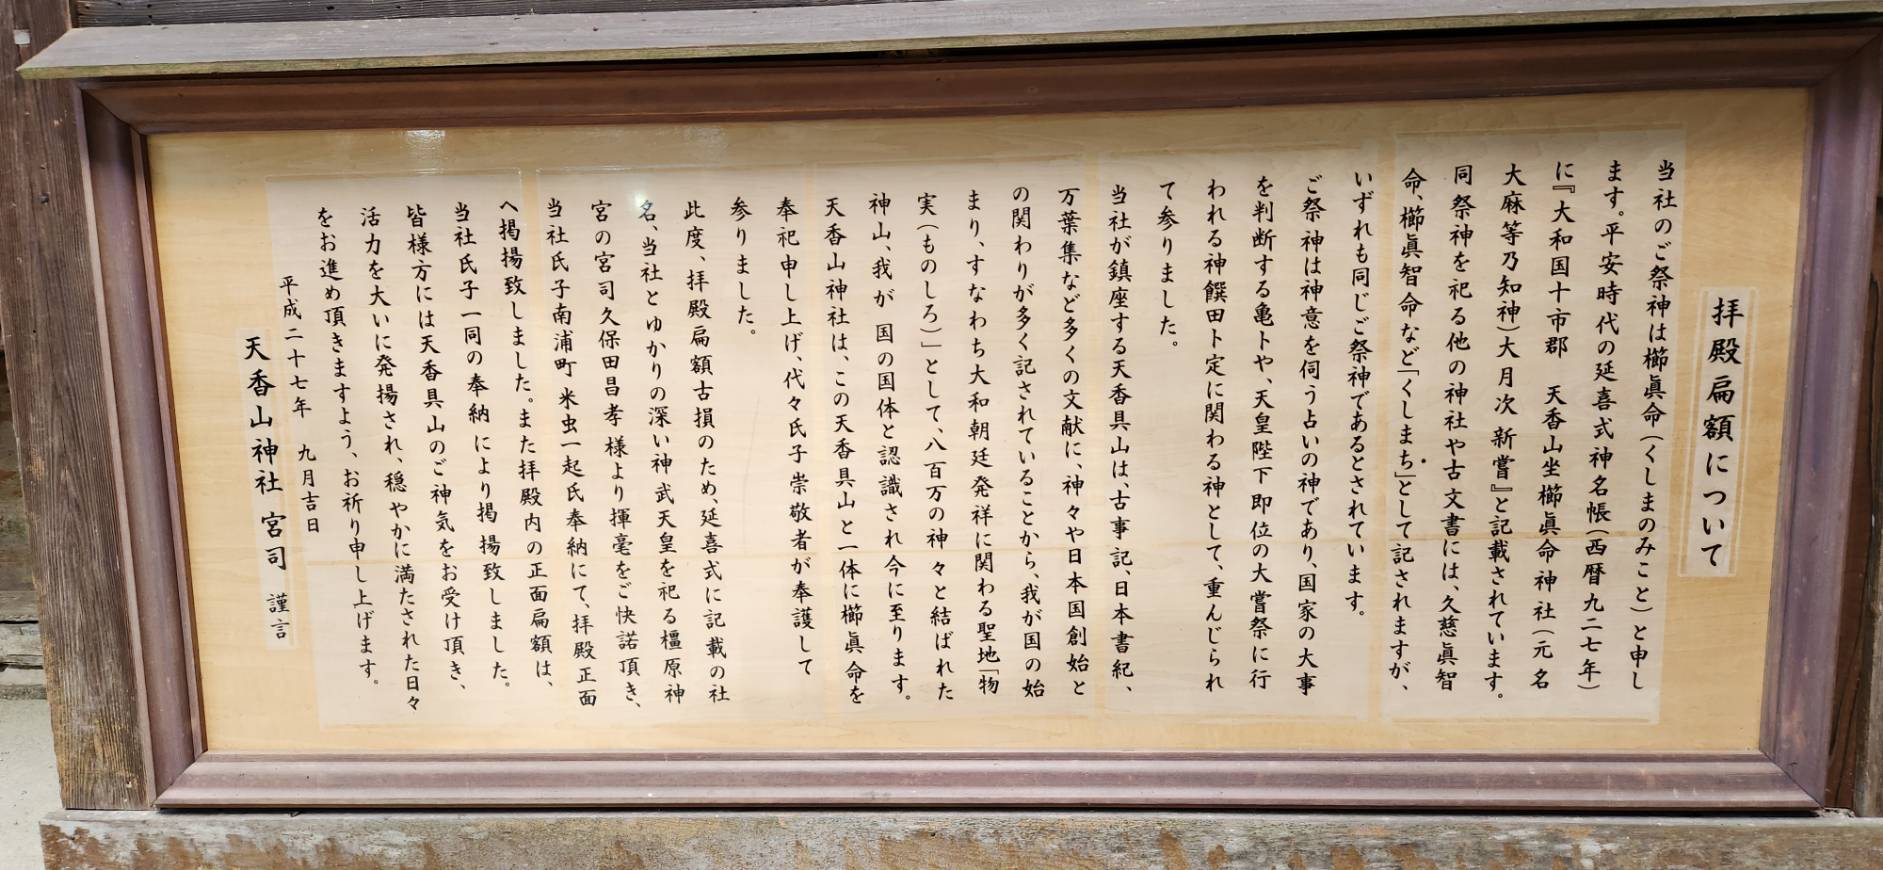 拝殿扁額について
当社のご祭神は櫛眞命(くしまのみこと)と申し
ます。平安時代の延喜式神名帳(西暦九二七年)
に『大和国十市郡　天香山坐櫛眞命神社(元名
大麻等乃知神)大月次新嘗』と記載されています。
同祭神を祀る他の神社や古文書には、久慈眞智
命、櫛眞智命など「くしまち」として記されますが、
いずれも同じご祭神であるとされています。
ご祭神は神意を伺う占いの神であり、国家の大事
を判断する亀卜や、天皇陛下即位の大嘗祭に行
われる神饌田卜定に関わる神として、重んじられ
て参りました。
当社が鎮座する天香具山は、古事記、日本書紀、
万葉集など多くの文献に、神々や日本国創始と
の関わりが多く記されていることから、我が国の始
まり、すなわち大和朝廷発祥に関わる聖地「物
実(ものしろ)」として、八百万の神々と結ばれた
神山、我が国の国体と認識され今に至ります。
天香山神社は、この天香具山と一体に櫛眞命を
奉祀申し上げ、代々氏子崇敬者が奉護して
参りました。
此度、拝殿扁額古損のため、延喜式に記載の社
名、当社とゆかりの深い神武天皇を祀る橿原神
宮の宮司久保田昌孝様より揮毫をご快諾頂き、
当社氏子南浦町米虫一起氏奉納にて、拝殿正面
へ掲揚致しました。また拝殿内の正面扁額は、
当社氏子一同の奉納により掲揚致しました。
皆様方には天香具山のご神気をお受け頂き、
活力を大いに発揚され、穏やかに満たされた日々
をお進め頂きますよう、お祈り申し上げます。
平成二十七年　九月吉日
天香山神社　宮司　謹言